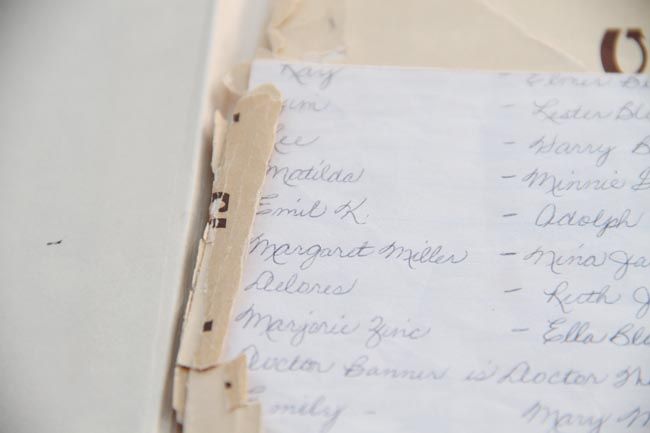 Kay - Elmer
- Lester
- Harry
Matilda - Minnie
Emil K. - Adolph
Margaret Miller - Nina
Delores - Ruth
Marjorie Zinc - Ella
Doctor Banner is Doctor
Emily - Mary